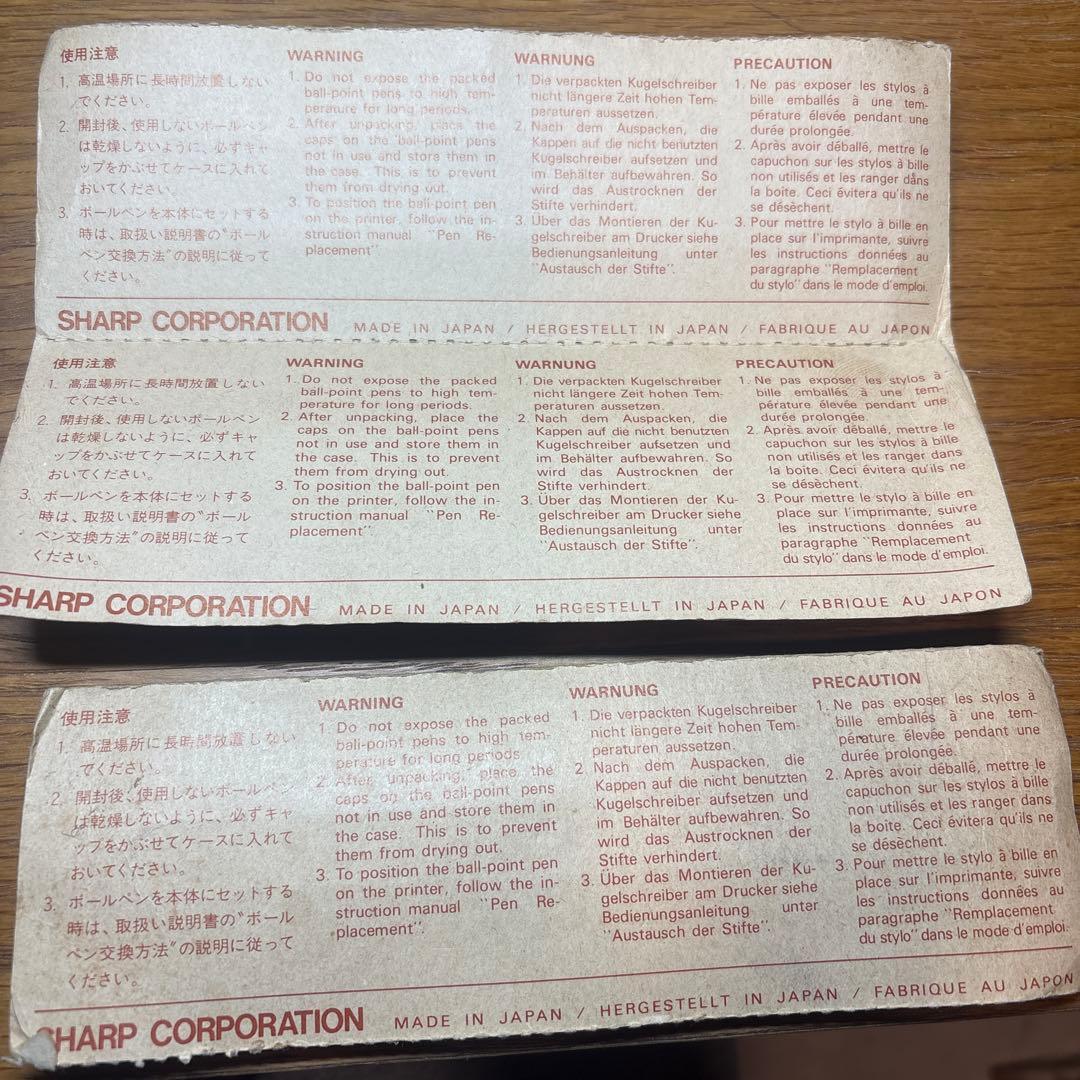 使用注意
1. 高温場所に長時間放置しない
でください。
2. 開封後、使用しないボールペン
は乾燥しないように、必ずキャ
ップをかぶせてケースに入れて
おいてください。
3. ボールペンを本体にセットする
時は、取扱い説明書の"ボール
ペン交換方法"の説明に従って
ください。
WARNING
1. Do not expose the packed
ball-point pens to high tem-
perature for long periods.
2. After unpacking, place the
caps on the ball-point pens
not in use and store them in
the case. This is to prevent
them from drying out.
3. To position the ball-point pen
on the printer, follow the in-
struction manual "Pen Re-
placement"
WARNUNG
1. Die verpackten Kugelschreiber
nicht längere Zeit hohen Tem-
peraturen aussetzen.
2. Nach dem Auspacken, die
Kappen auf die nicht benutzten
Kugelschreiber aufsetzen und
im Behälter aufbewahren. So
wird das Austrocknen der
Stifte verhindert.
3. Über das Montieren der Ku-
gelschreiber am Drucker siehe
Bedienungsanleitung unter
"Austausch der Stifte".
PRECAUTION
1. Ne pas exposer les stylos à
bille emballés à une tem-
pérature élevée pendant une
durée prolongée.
2. Après avoir déballé, mettre le
capuchon sur les stylos à bille
non utilisés et les ranger dans
la boite. Ceci évitera qu'ils ne
se désèchent.
3. Pour mettre le stylo à bille en
place sur l'imprimante, suivre
les instructions données au
paragraphe "Remplacement
du stylo" dans le mode d'emploi.
SHARP CORPORATION MADE IN JAPAN / HERGESTELLT IN JAPAN / FABRIQUE AU JAPON
使用注意
1. 高温場所に長時間放置しない
でください。
2. 開封後、使用しないボールペン
は乾燥しないように、必ずキャ
ップをかぶせてケースに入れて
おいてください。
3. ボールペンを本体にセットする
時は、取扱い説明書の"ボール
ペン交換方法"の説明に従って
ください。
WARNING
1. Do not expose the packed
ball-point pens to high tem-
perature for long periods.
2. After unpacking, place the
caps on the ball-point pens
not in use and store them in
the case. This is to prevent
them from drying out.
3. To position the ball-point pen
on the printer, follow the in-
struction manual "Pen Re-
placement"
WARNUNG
1. Die verpackten Kugelschreiber
nicht längere Zeit hohen Tem-
peraturen aussetzen.
2. Nach dem Auspacken, die
Kappen auf die nicht benutzten
Kugelschreiber aufsetzen und
im Behälter aufbewahren. So
wird das Austrocknen der
Stifte verhindert.
3. Über das Montieren der Ku-
gelschreiber am Drucker siehe
Bedienungsanleitung unter
"Austausch der Stifte".
PRECAUTION
1. Ne pas exposer les stylos à
bille emballés à une tem-
pérature élevée pendant une
durée prolongée.
2. Après avoir déballé, mettre le
capuchon sur les stylos à bille
non utilisés et les ranger dans
la boite. Ceci évitera qu'ils ne
se désèchent.
3. Pour mettre le stylo à bille en
place sur l'imprimante, suivre
les instructions données au
paragraphe "Remplacement
du stylo" dans le mode d'emploi.
SHARP CORPORATION MADE IN JAPAN / HERGESTELLT IN JAPAN / FABRIQUE AU JAPON
使用注意
1. 高温場所に長時間放置しない
でください。
2. 開封後、使用しないボールペン
は乾燥しないように、必ずキャ
ップをかぶせてケースに入れて
おいてください。
3. ボールペンを本体にセットする
時は、取扱い説明書の"ボール
ペン交換方法"の説明に従って
ください。
WARNING
1. Do not expose the packed
ball-point pens to high tem-
perature for long periods
2. After unpacking, place the
caps on the ball-point pens
not in use and store them in
the case. This is to prevent
them from drying out.
3. To position the ball-point pen
on the printer, follow the in-
struction manual "Pen Re-
placement".
WARNUNG
1. Die verpackten Kugelschreiber
nicht längere Zeit hohen Tem-
peraturen aussetzen.
2. Nach dem Auspacken, die
Kappen auf die nicht benutzten
Kugelschreiber aufsetzen und
im Behälter aufbewahren. So
wird das Austrocknen der
Stifte verhindert.
3. Über das Montieren der Ku-
gelschreiber am Drucker siehe
Bedienungsanleitung unter
"Austausch der Stifte".
PRECAUTION
1. Ne pas exposer les stylos à
bille emballés à une tem-
pérature élevée pendant une
durée prolongée.
2. Après avoir déballé, mettre le
capuchon sur les stylos à bille
non utilisés et les ranger dans
la boite. Ceci évitera qu'ils ne
se désèchent.
3. Pour mettre le stylo à bille en
place sur l'imprimante, suivre
les instructions données au
paragraphe "Remplacement
du stylo" dans le mode d'emploi.
SHARP CORPORATION MADE IN JAPAN / HERGESTELLT IN JAPAN / FABRIQUE AU JAPON